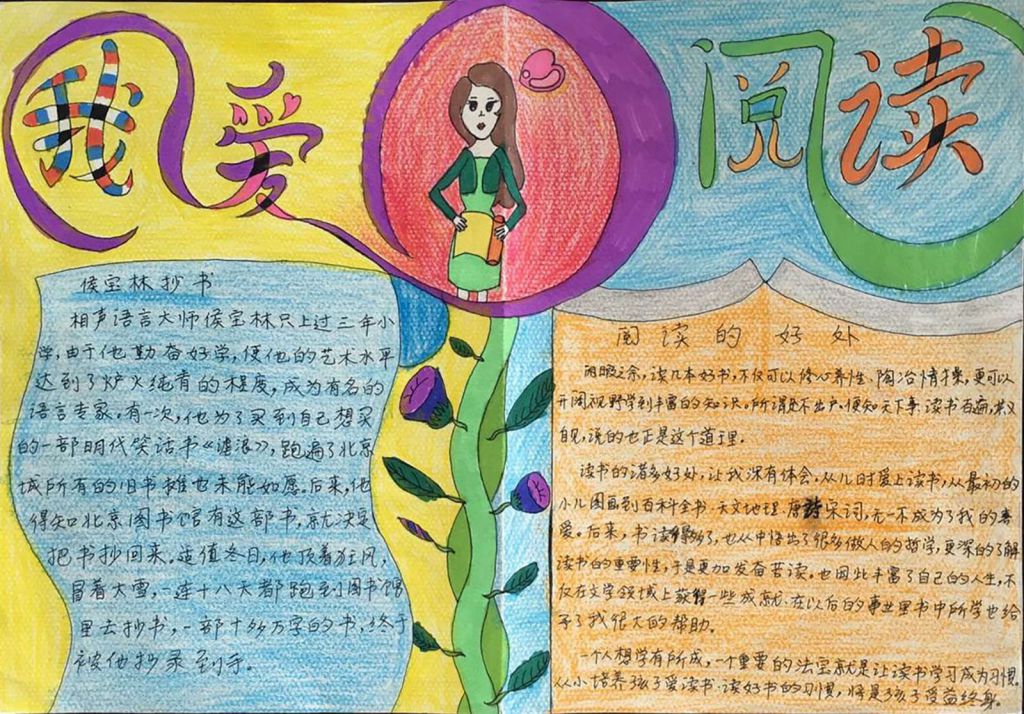 我爱阅读
侯宝林抄书
相声语言大师侯宝林只上过三年小
学,由于他勤奋好学,使他的艺术水平
达到了炉火纯青的程度,成为有名的
语言专家。有一次,他为了买到自己想买
的一部明代笑话书《谑浪》,跑遍了北京
城所有的旧书摊也未能如愿。后来,他
得知北京图书馆有这部书,就决定
把书抄回来。适值冬日,他顶着狂风,
冒着大雪,一连十八天都跑到图书馆
里去抄书,一部十多万字的书,终于
被他抄录到手。
阅读的好处
闲暇之余,读几本好书,不仅可以修心养性、陶冶情操,更可以
开阔视野学到丰富的知识。所谓足不出户,便知天下事,读书百遍,其义
自见,说的也正是这个道理。
读书的诸多好处,让我深有体会,从儿时爱上读书,从最初的
小儿图画到百科全书、天文地理、唐诗宋词,无一不成为了我的喜
爱。后来,书读得多了,也从中悟出了很多做人的哲学,更深的了解
读书的重要性,于是更加发奋苦读。也因此丰富了自己的人生,不
仅在文学领域上获得一些成就,在以后的事业里书中所学也给
予了我很大的帮助。
一个人想学有所成,一个重要的法宝就是让读书学习成为习惯。
从小培养孩子爱读书、读好书的习惯,将是孩子受益终身。